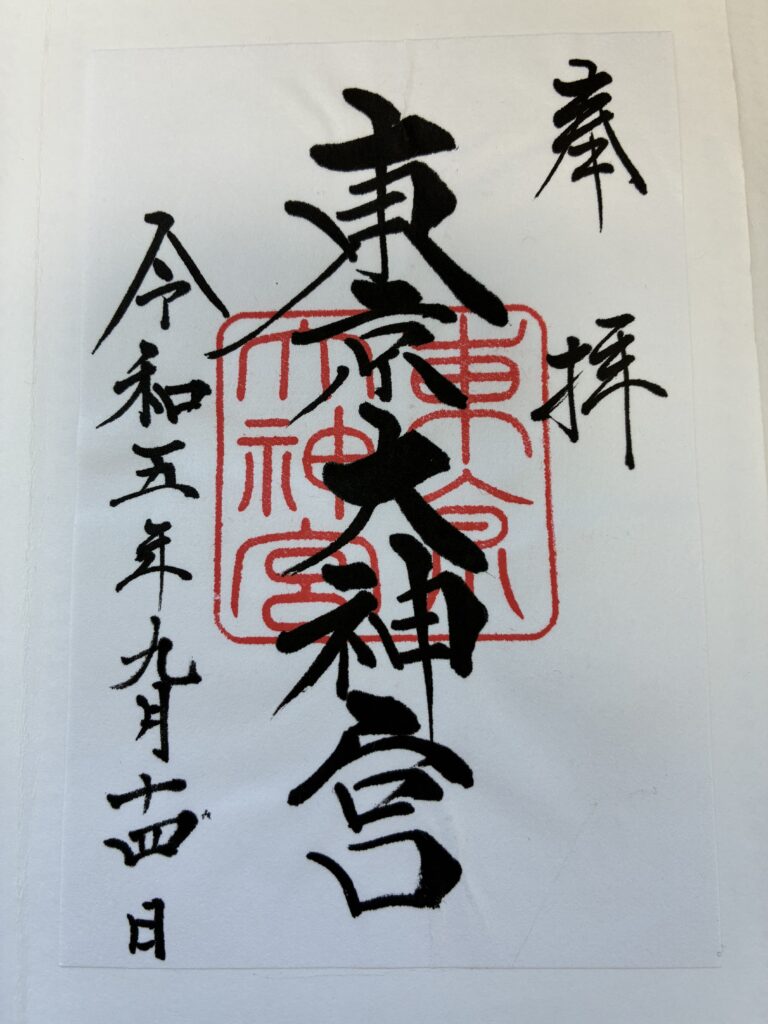 奉拝
東京大神宮
東京
大神宮
令和五年九月十四日